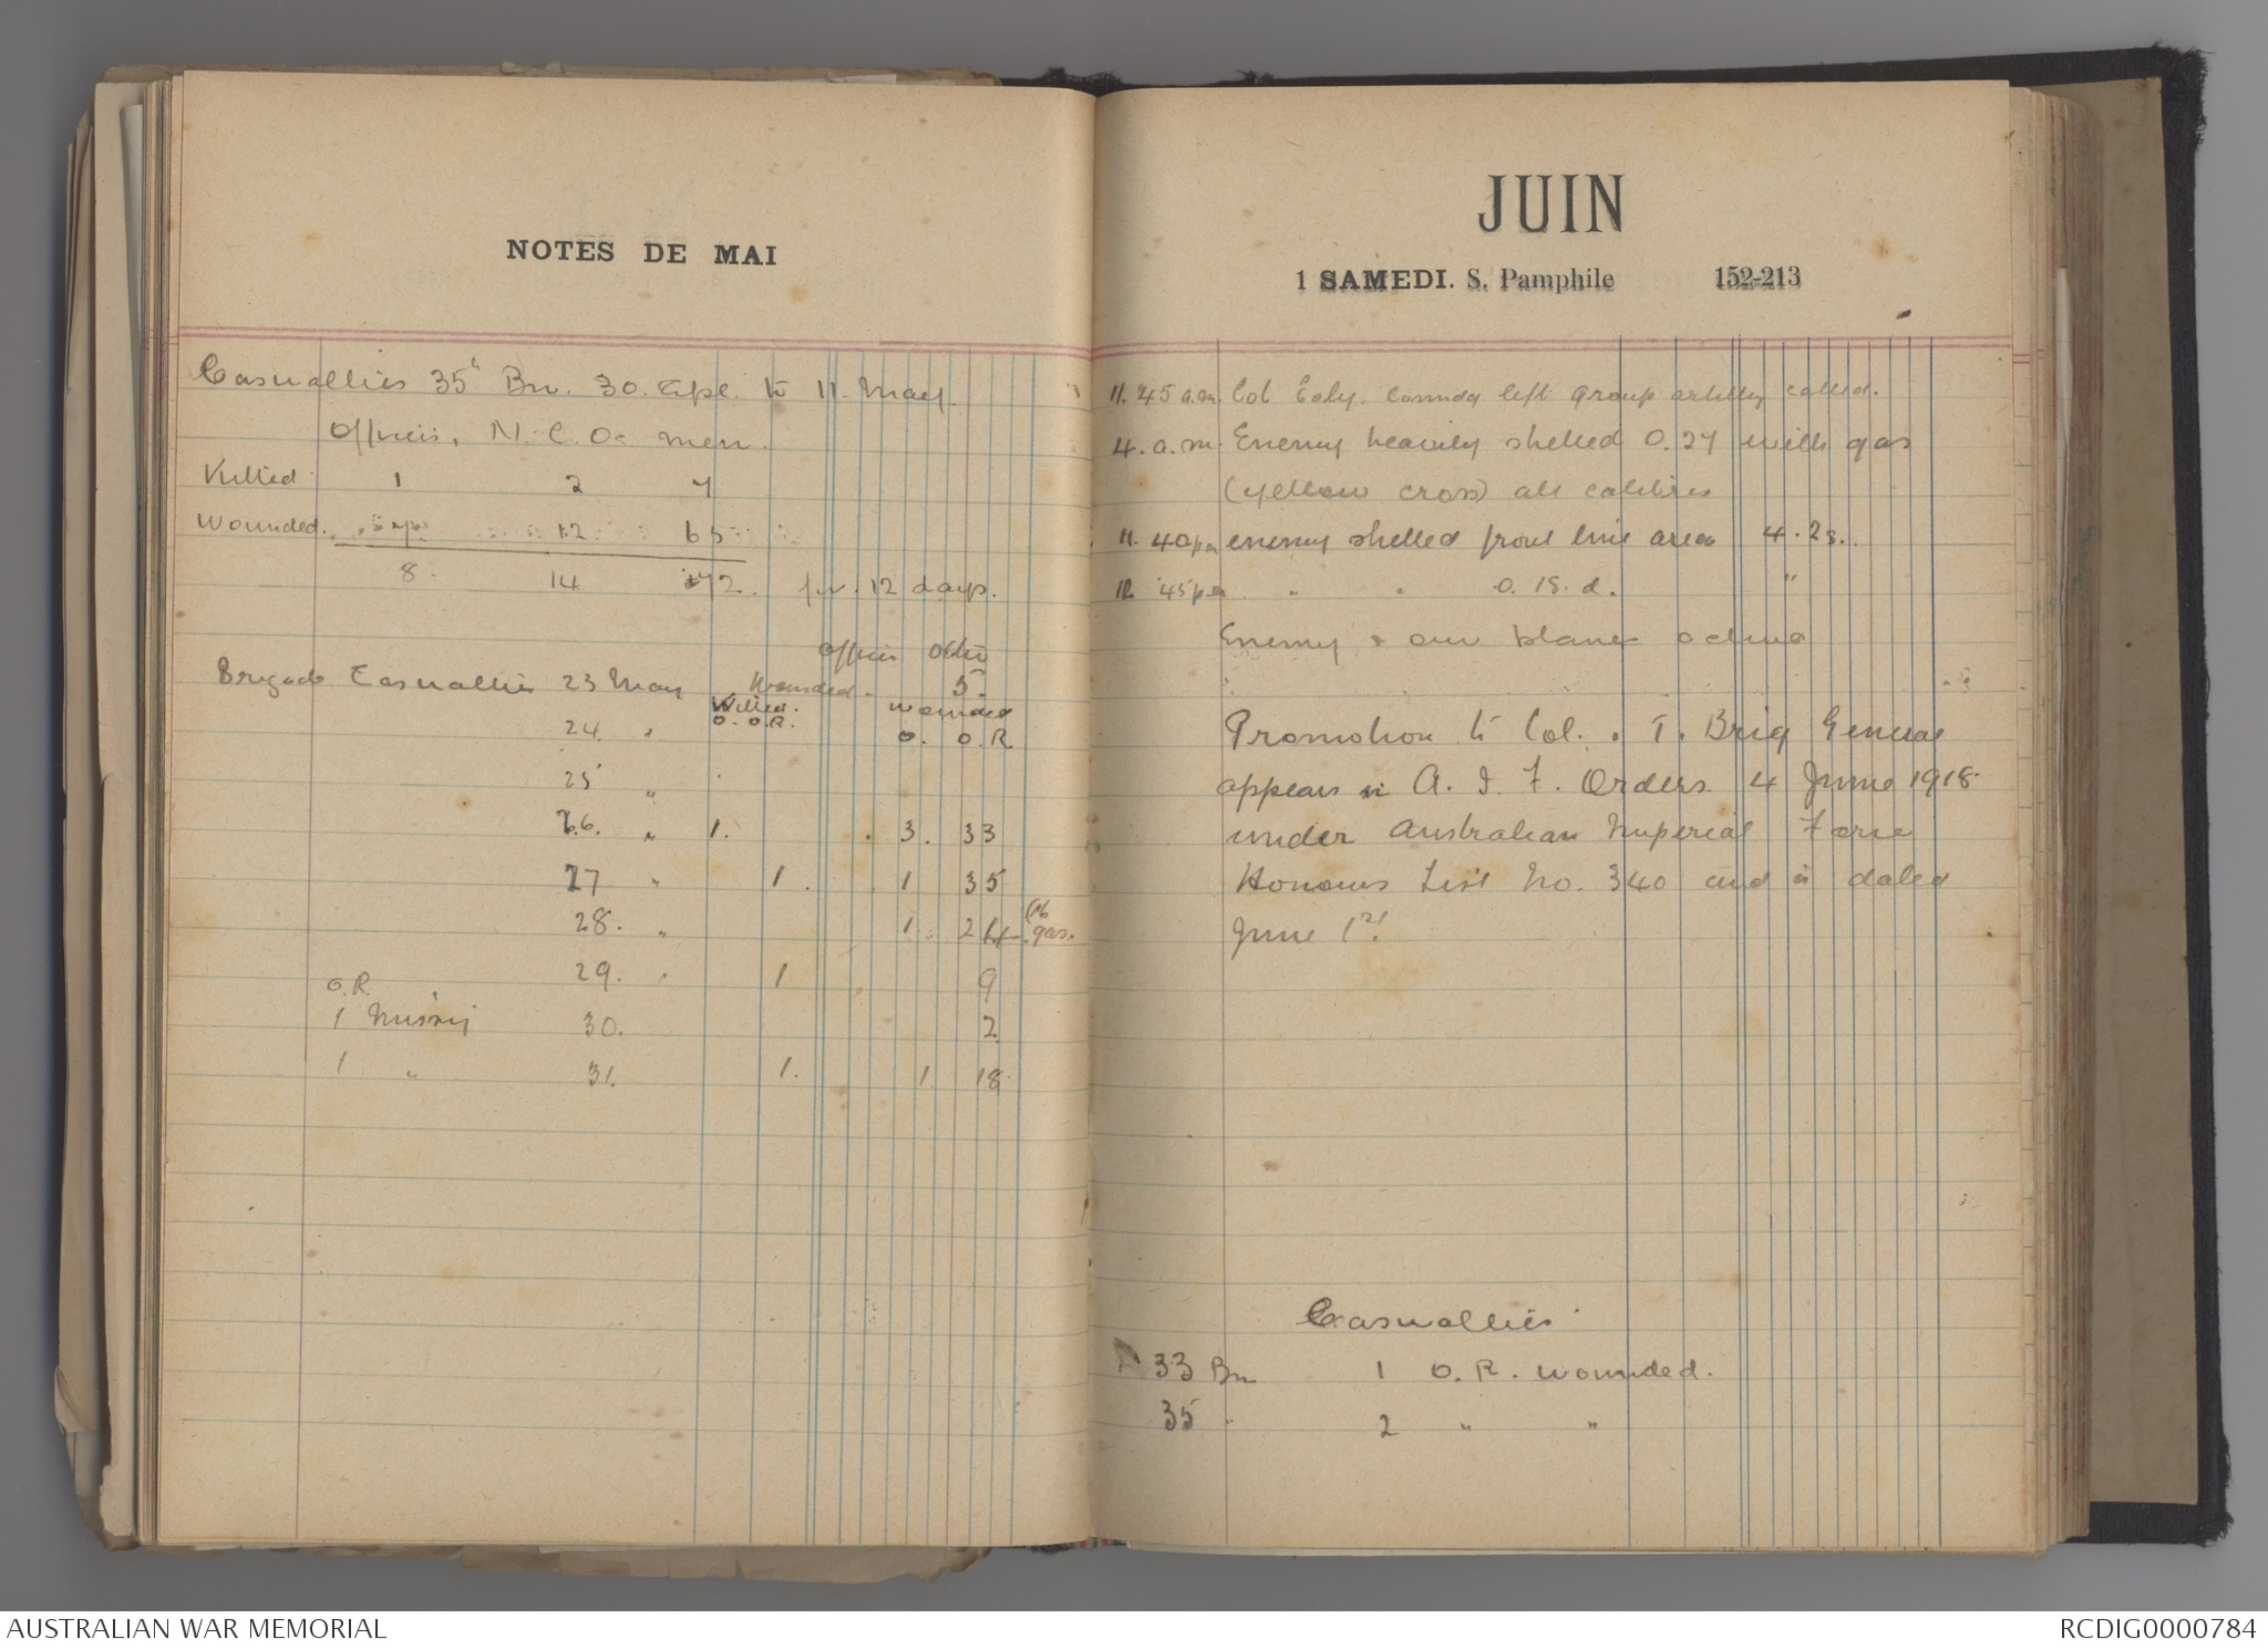 NOTES DE MAI
Casualties 35th Bn. 30. Apl. to 11. May.
Officers, N. C. Os men.
Killed 1 2 7
Wounded. 7 12 65
8. 14 72. for 12 days.
Officers Other
Brigade Casualties 23 May Wounded. 5.
Killed. wounded
O. O.R. O. O.R
24. "
25 "
26. " 1. 3. 33
27 " 1. 1 35
28. " 1. 24 (16 gas.
29. " 1 9
O.R.
1 Missing 30. 2
1 " 31. 1. 1 18
JUIN
1 SAMEDI. S. Pamphile 152-213
11.45 a.m. Col left Group artillery called.
4. a.m. Enemy heavily shelled O.27 with gas
(yellow cross) all calibres
11.40pm enemy shelled front line area 4.2s.
12.45pm " " O. 15. d. "
Enemy & our planes active
Promotion to Col. & T. Brig General
appears in A. I. F. Orders 4 June 1918
under Australian Imperial Force
Honours List No. 340 and is dated
June 1st.
Casualties
33 Bn 1 O. R. wounded.
35 " 2 " "
AUSTRALIAN WAR MEMORIAL
RCDIG0000784